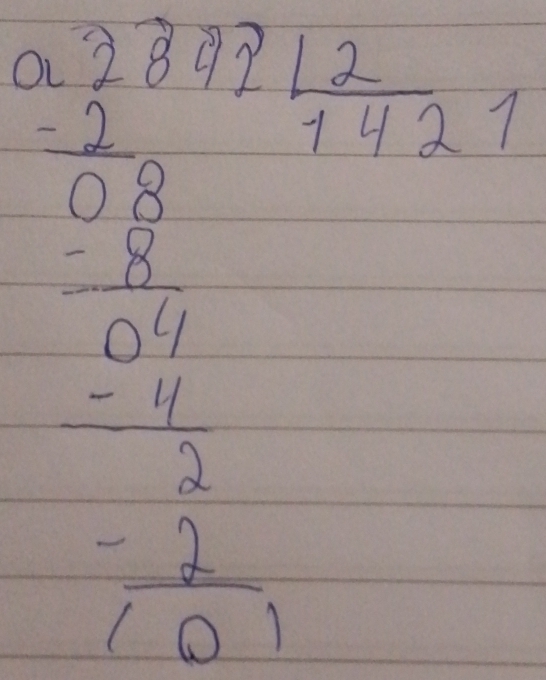 a 2842 | 2
- 2 1421
08
- 8
04
- 4
2
- 2
( 0 )